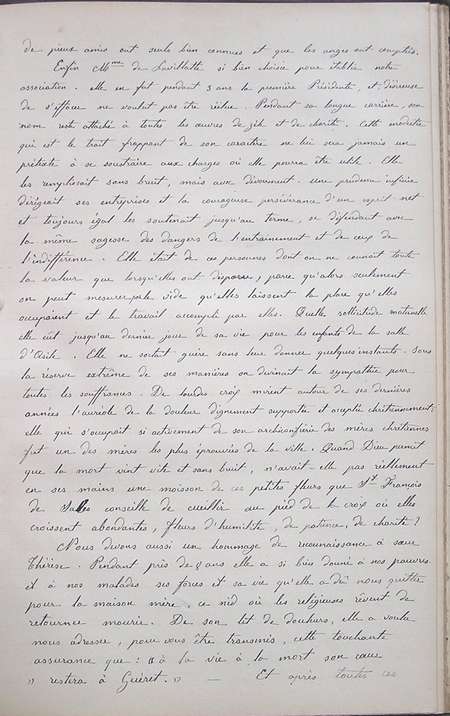 de pieux amis ont seuls bien connues et que les anges ont comptées.
Enfin Mme de Savillatte si bien choisie pour établir notre
association. elle en fut pendant 3 ans la première Présidente, et, désireuse
de s'effacer ne voulut pas être réélue. Pendant sa longue carrière, son
nom reste attaché à toutes les œuvres de zèle et de charité. Cette modestie
qui est le trait frappant de son caractère ne lui sera jamais un
prétexte à se soustraire aux charges où elle pourra être utile. Elle
les remplissait sans bruit, mais avec dévouement. une prudence infinie
dirigeait ses entreprises et la courageuse persévérance d'un esprit net
et toujours égal les soutenait jusqu'au terme, se défendant avec
la même sagesse des dangers de l'entrainement et de ceux de
l'indifférence. Elle était de ces personnes dont on ne connait toute
la valeur que lorsqu'elles ont disparu, parce qu'alors seulement
on peut mesurer le vide qu'elles laissent la place qu'elles
occupaient et le travail accompli par elles. Quelle sollicitude maternelle
elle eut jusqu'au dernier jour de sa vie pour les enfants de la salle
d'Asile. Elle ne sortait guère sans leur donner quelques instants. Sous
la réserve extrême de ses manières on devinait la sympathie pour
toutes les souffrances. De lourdes croix mirent autour de ses dernières
années l'auréole de la douleur dignement supportée et acceptée chrétiennement.
elle qui s'occupait si activement de son archiconfrérie des mères chrétiennes
fut un des mères les plus éprouvées de la ville. Quand Dieu permit
que la mort vint vite et sans bruit, n'avait-elle pas réellement
en ses mains une moisson de ces petites fleurs que St François
de Sales conseille de cueillir au pied de la croix où elles
croissent abondantes, fleurs d'humilité, de patience, de charité?
Nous devons aussi un hommage de reconnaissance à sœur
Thérèse. Pendant près de 9 ans elle a si bien donné à nos pauvres
et à nos malades ses forces et sa vie qu'elle a dû nous quitter
pour la maison mère, ce nid où les religieuses rêvent de
retourner mourir. De son lit de douleurs, elle a voulu
nous adresser, pour vous être transmis, cette touchante
assurance que: « à la vie à la mort son cœur
» restera à Guéret. » — Et après toutes ces